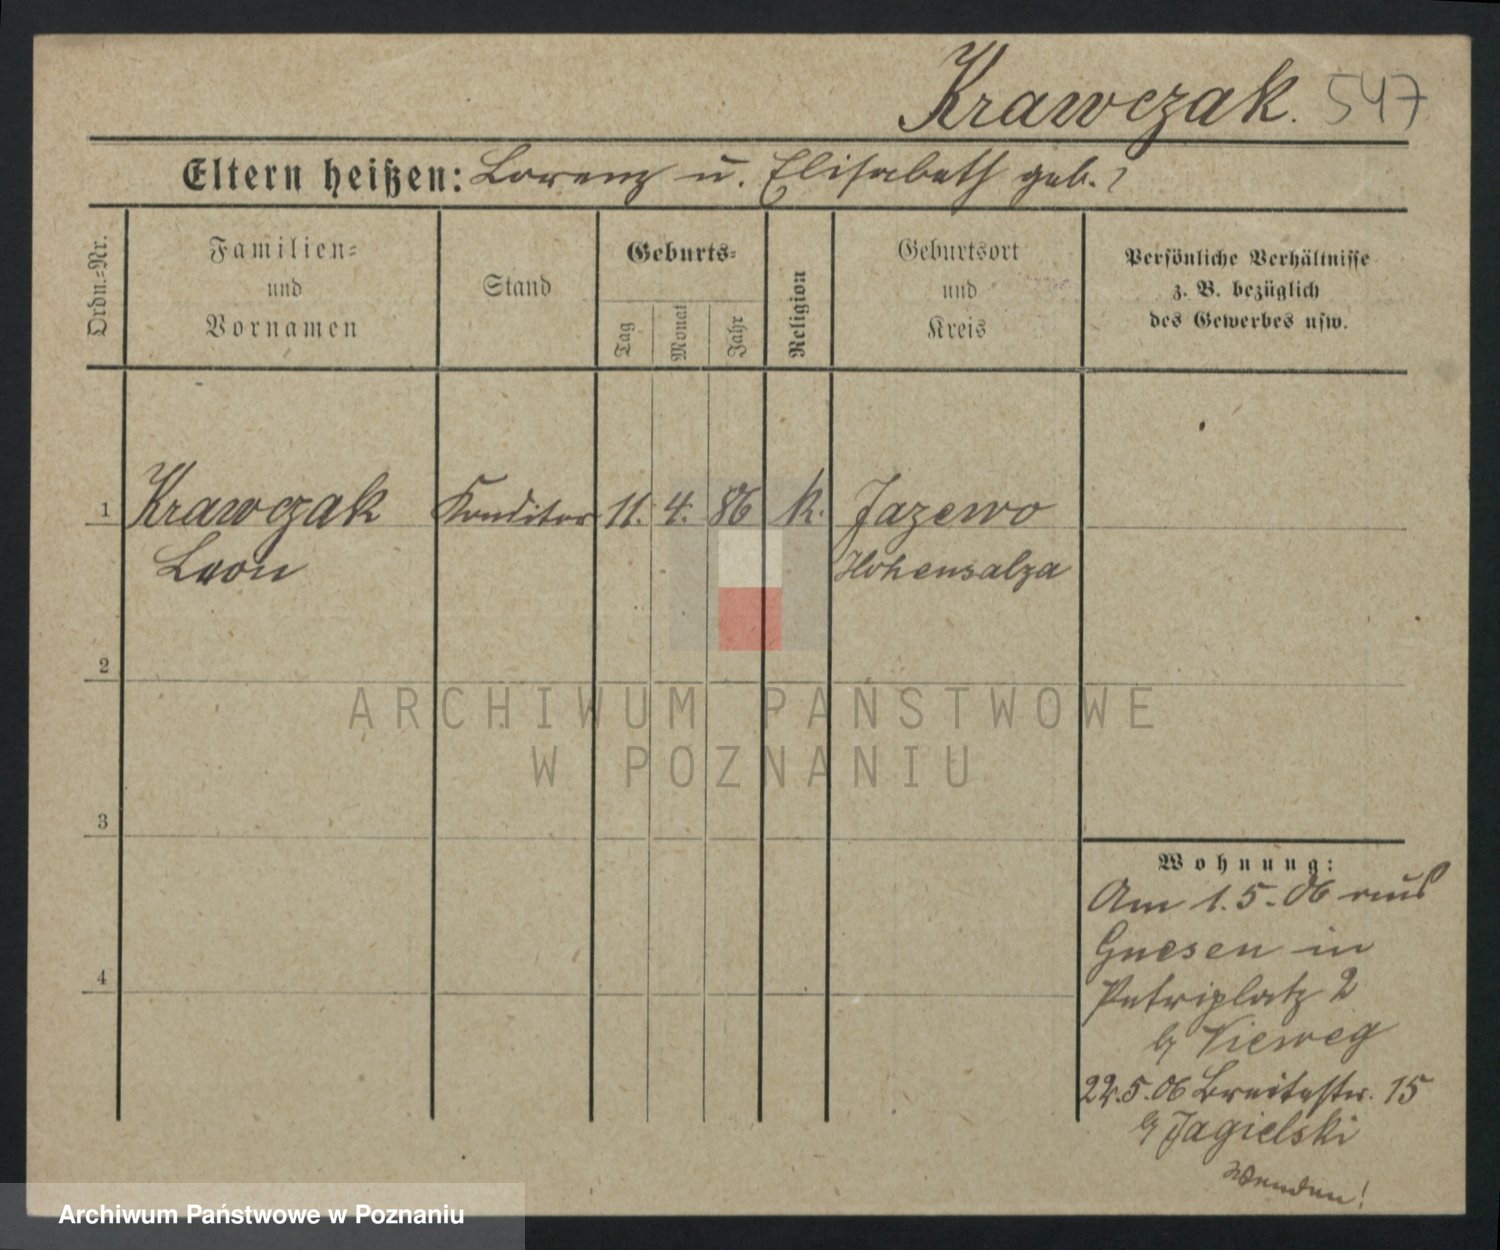 Krawczak. 547
Eltern heißen: Lorenz u. Elisabeth geb. ?
Ordn.=Nr.
Familien=
und
Vornamen
Stand
Geburts=
Tag
Monat
Jahr
Religion
Geburtsort
und
Kreis
Persönliche Verhältnisse
z. B. bezüglich
des Gewerbes usw.
1 Krawczak Konditor 11. 4. 86 k. Jazewo
Leon Hohensalza
2
ARCHIWUM PAŃSTWOWE
W POZNANIU
3
Wohnung:
Am 1.5.06 aus
Gnesen in
4
Petriplatz 2
b/ Vieweg
22.5.06 Breitestr. 15
b/ Jagielski
Wenden!
Archiwum Państwowe w Poznaniu